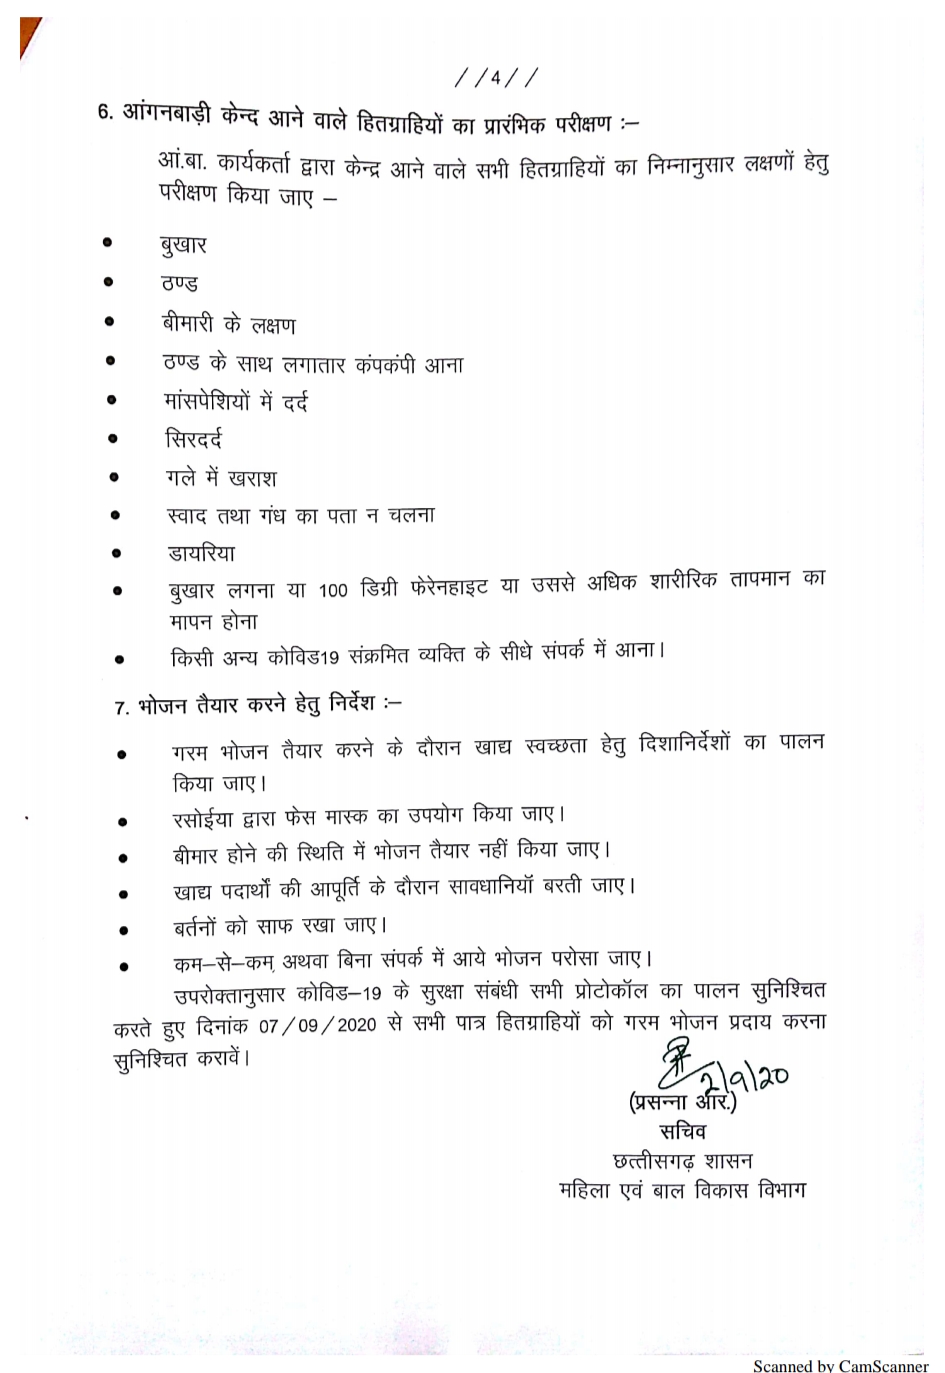 //4//
6. आंगनबाड़ी केन्द आने वाले हितग्राहियों का प्रारंभिक परीक्षण :–
आं.बा. कार्यकर्ता द्वारा केन्द्र आने वाले सभी हितग्राहियों का निम्नानुसार लक्षणों हेतु
परीक्षण किया जाए –
• बुखार
• ठण्ड
• बीमारी के लक्षण
• ठण्ड के साथ लगातार कंपकंपी आना
• मांसपेशियों में दर्द
• सिरदर्द
• गले में खराश
• स्वाद तथा गंध का पता न चलना
• डायरिया
• बुखार लगना या 100 डिग्री फेरेनहाइट या उससे अधिक शारीरिक तापमान का
मापन होना
• किसी अन्य कोविड19 संक्रमित व्यक्ति के सीधे संपर्क में आना।
7. भोजन तैयार करने हेतु निर्देश :–
• गरम भोजन तैयार करने के दौरान खाद्य स्वच्छता हेतु दिशानिर्देशों का पालन
किया जाए।
• रसोईया द्वारा फेस मास्क का उपयोग किया जाए।
• बीमार होने की स्थिति में भोजन तैयार नहीं किया जाए।
• खाद्य पदार्थों की आपूर्ति के दौरान सावधानियॉ बरती जाए।
• बर्तनों को साफ रखा जाए।
• कम–से–कम, अथवा बिना संपर्क में आये भोजन परोसा जाए।
उपरोक्तानुसार कोविड–19 के सुरक्षा संबंधी सभी प्रोटोकॉल का पालन सुनिश्चित
करते हुए दिनांक 07/09/2020 से सभी पात्र हितग्राहियों को गरम भोजन प्रदाय करना
सुनिश्चित करावें।
2/9/20
(प्रसन्ना आर.)
सचिव
छत्तीसगढ़ शासन
महिला एवं बाल विकास विभाग
Scanned by CamScanner